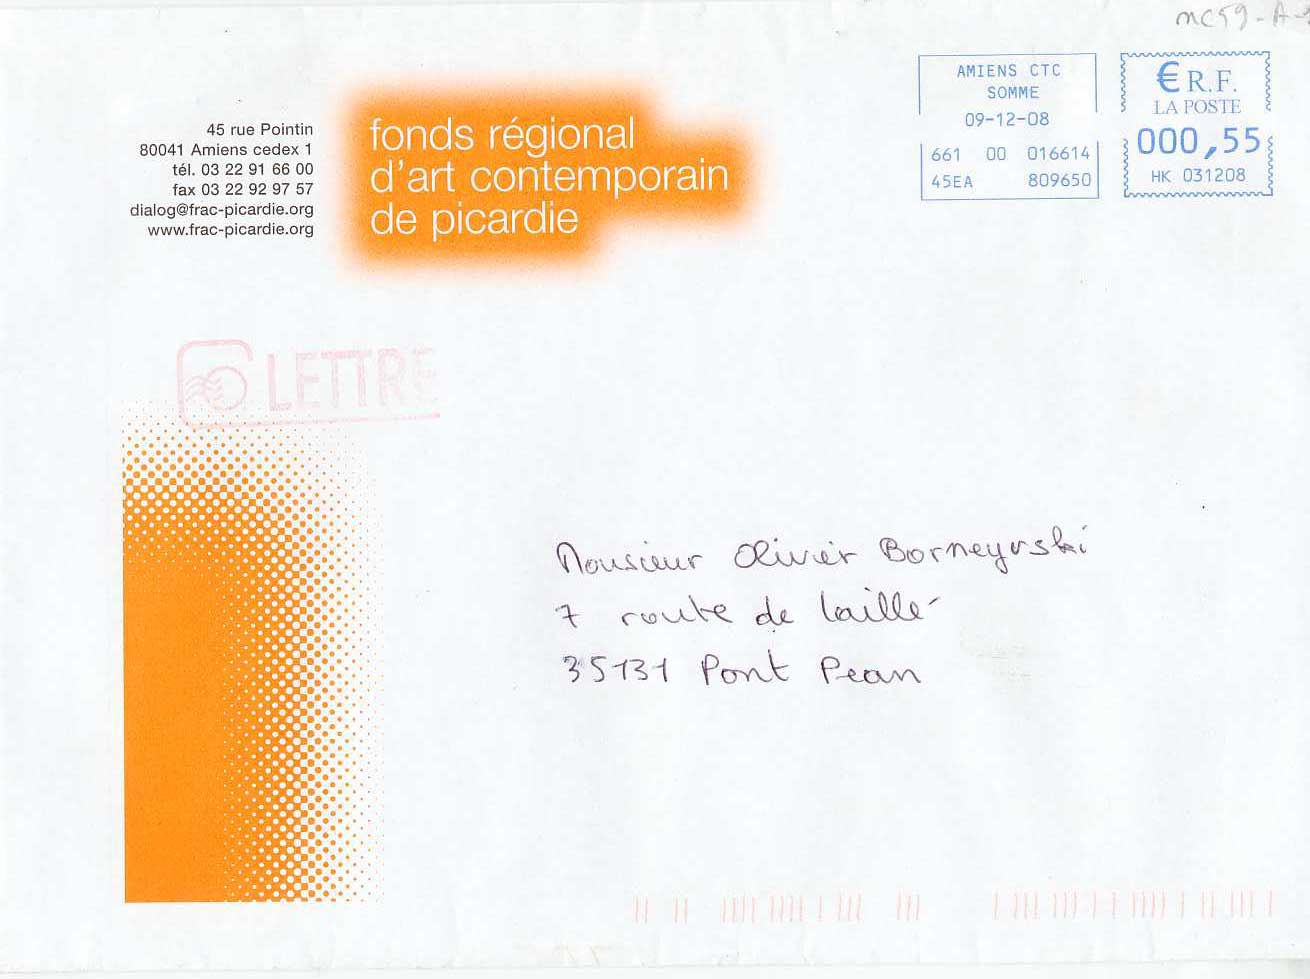 mc59-A-
45 rue Pointin
80041 Amiens cedex 1
tél. 03 22 91 66 00
fax 03 22 92 97 57
dialog@frac-picardie.org
www.frac-picardie.org
fonds régional
d'art contemporain
de picardie
AMIENS CTC
SOMME
09-12-08
661 00 016614
45EA 809650
€ R.F.
LA POSTE
000,55
HK 031208
LETTRE
Monsieur Olivier Borneyvski
7 route de Laillé
35131 Pont Pean